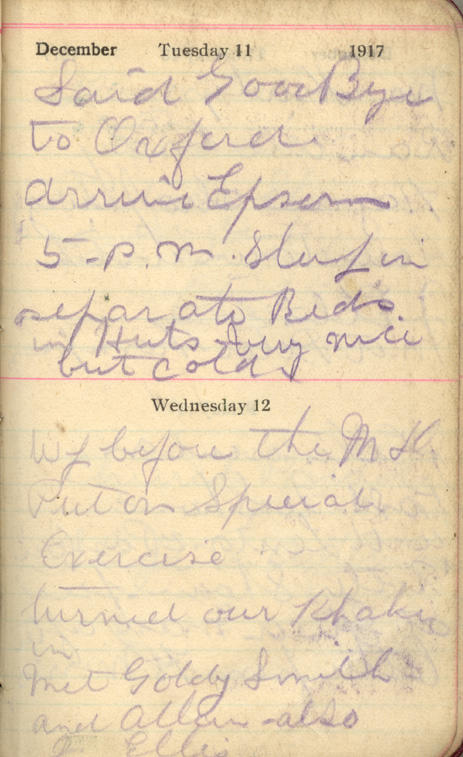 December Tuesday 11 1917
Said Good Bye
to Oxford
arrive Epsom
5-P.M. Sleep in
separate Beds
in Huts very nice
but cold
Wednesday 12
before the M.O.
Put on Special
Exercise
turned our Khaki
in
met Goldy Smith
and Allen also
Ellis